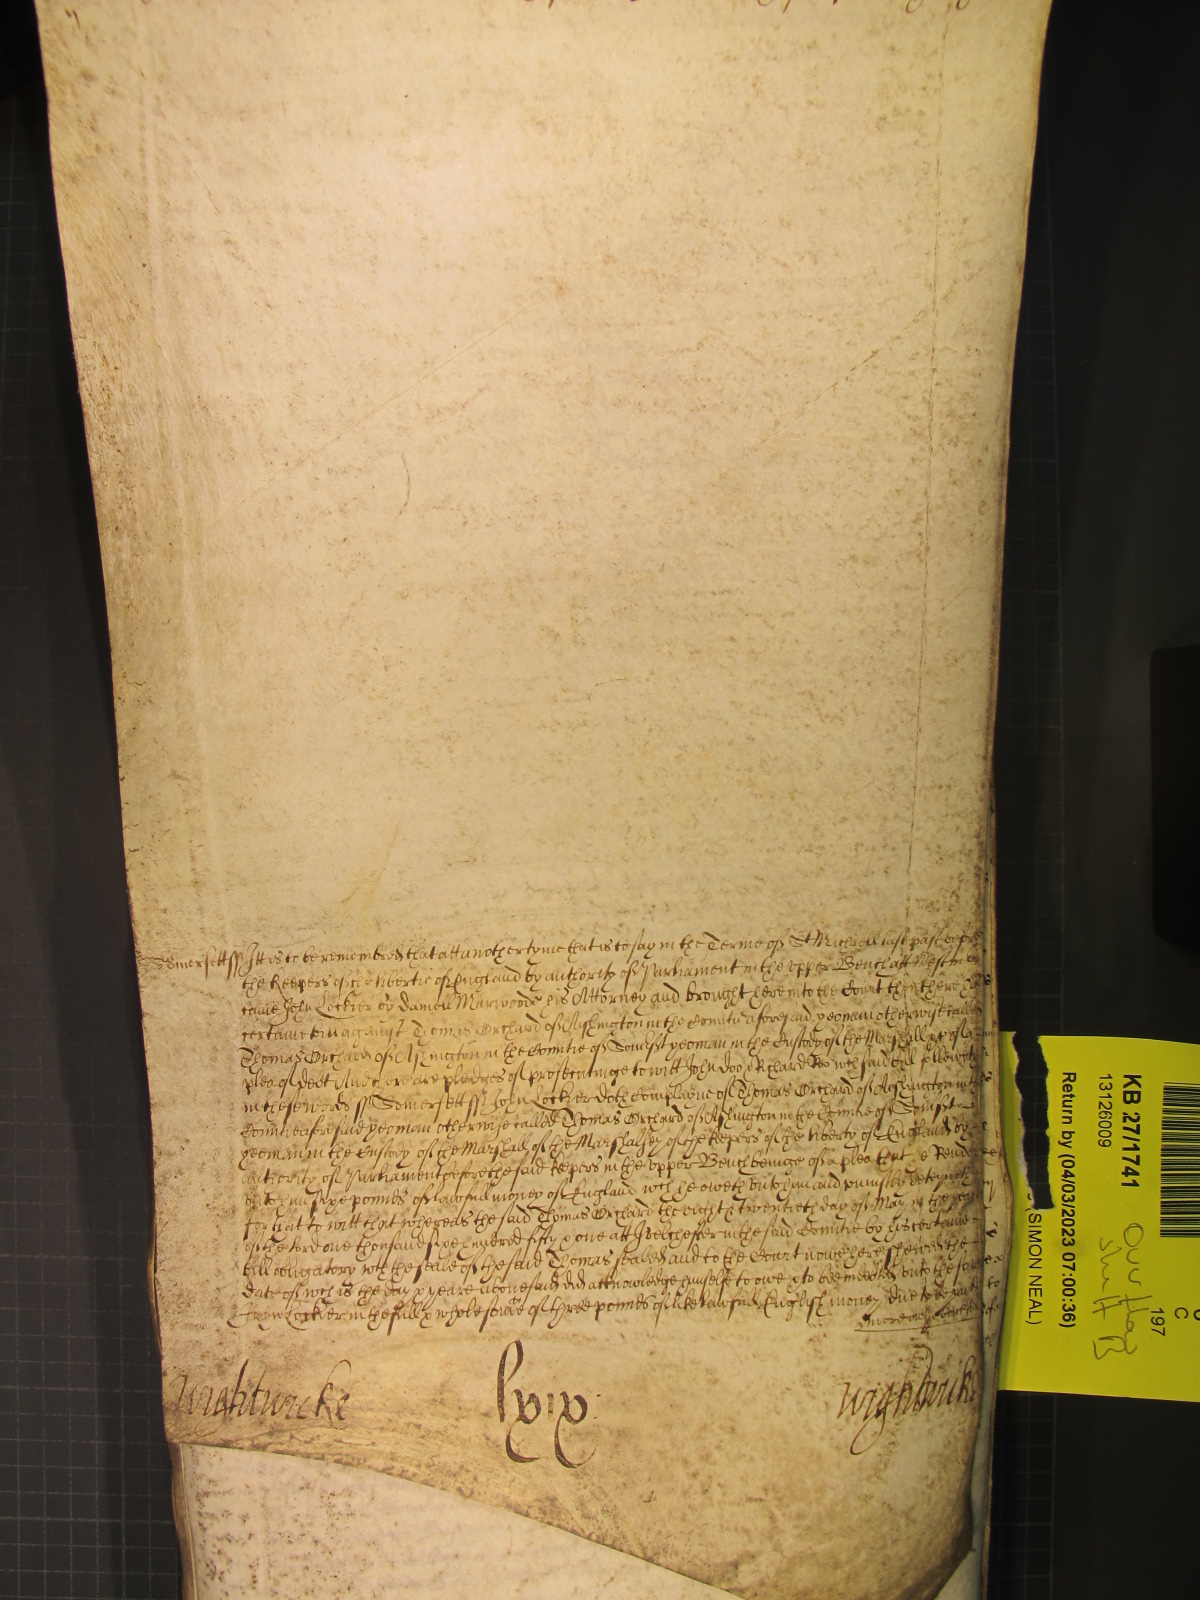 Somersett ss Itt is to be remembred that att another tyme that is to say in the Terme of St Michaell last past before
the Keepers of the libertie of England by authority of Parliament in the upper Bench att Westm
came John Lockier by Daniell Marwoode his Attorney and brought here into the Court then there his
certaine bill against Thomas Orchard of Ashington in the Countie aforesaid yeoman otherwise called
Thomas Orchard of Ashington in the Comitie of Somst yeoman in the Custody of the Marshall &c of a
plea of debt And there are pledges of prosecutinge to witt John Doo & Richard Roo wch said bill followeth
in these words ss Somersett ss John Lockier doth Complayne of Thomas Orchard of Ashington in the
Comitie aforesaid yeoman otherwise called Thomas Orchard of Ashington in the Comitie of Somst
yeoman in the Custody of the Marshall of the Marshalsey of the Keepers of the liberty of England by
authority of Parliament before the said Keepers in the upper Bench beinge of a plea that he Render
unto him sixe pounds of lawfull money of England wch he oweth unto him and uniustly deteyneth
for that to witt that whereas the said Thomas Orchard the eight & twentieth day of May in the yeare
of the lord one thousand sixe hundred fifty & one att Ivelchester in the said Comitie by his certaine
bill obligatory wth the seale of the said Thomas sealed and to the Court nowe here shewed the
date of wch is the day & yeare abovesaid did acknowledge himselfe to owe & to be indebted unto the said
John Lockier in the full & whole some of three pounds of like lawfull English money due to be paid
Wightwicke lxix Wightwicke
KB 27/1741
13126009
Return by (04/03/2023 07:00:36)
(SIMON NEAL)
197
C